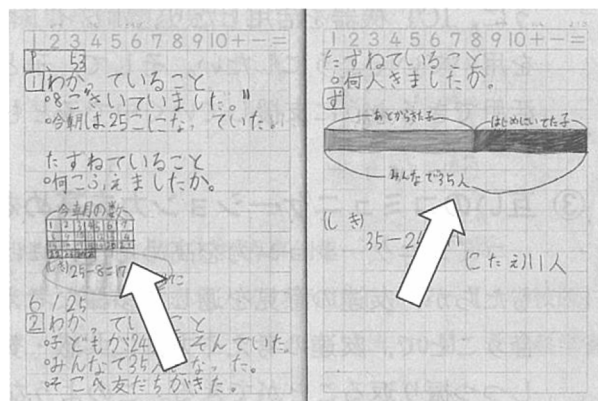 1 2 3 4 5 6 7 8 9 10 + - =
P. 53
1 わかっていること
○8こさいていました。
○今朝は25こになっていた。
たずねていること
○何こふえましたか。
今朝の数
(しき) 25-8=17
6/25
2 わかっていること
○子どもが24 そんでいた。
○みんなで35人 なった。
○そこへ友だちがきた。
1 2 3 4 5 6 7 8 9 10 + - =
たずねていること
○何人きましたか。
ず
あとからきた子 はじめにいてた子
みんなで35人
(しき)
35-24
(こたえ)11人